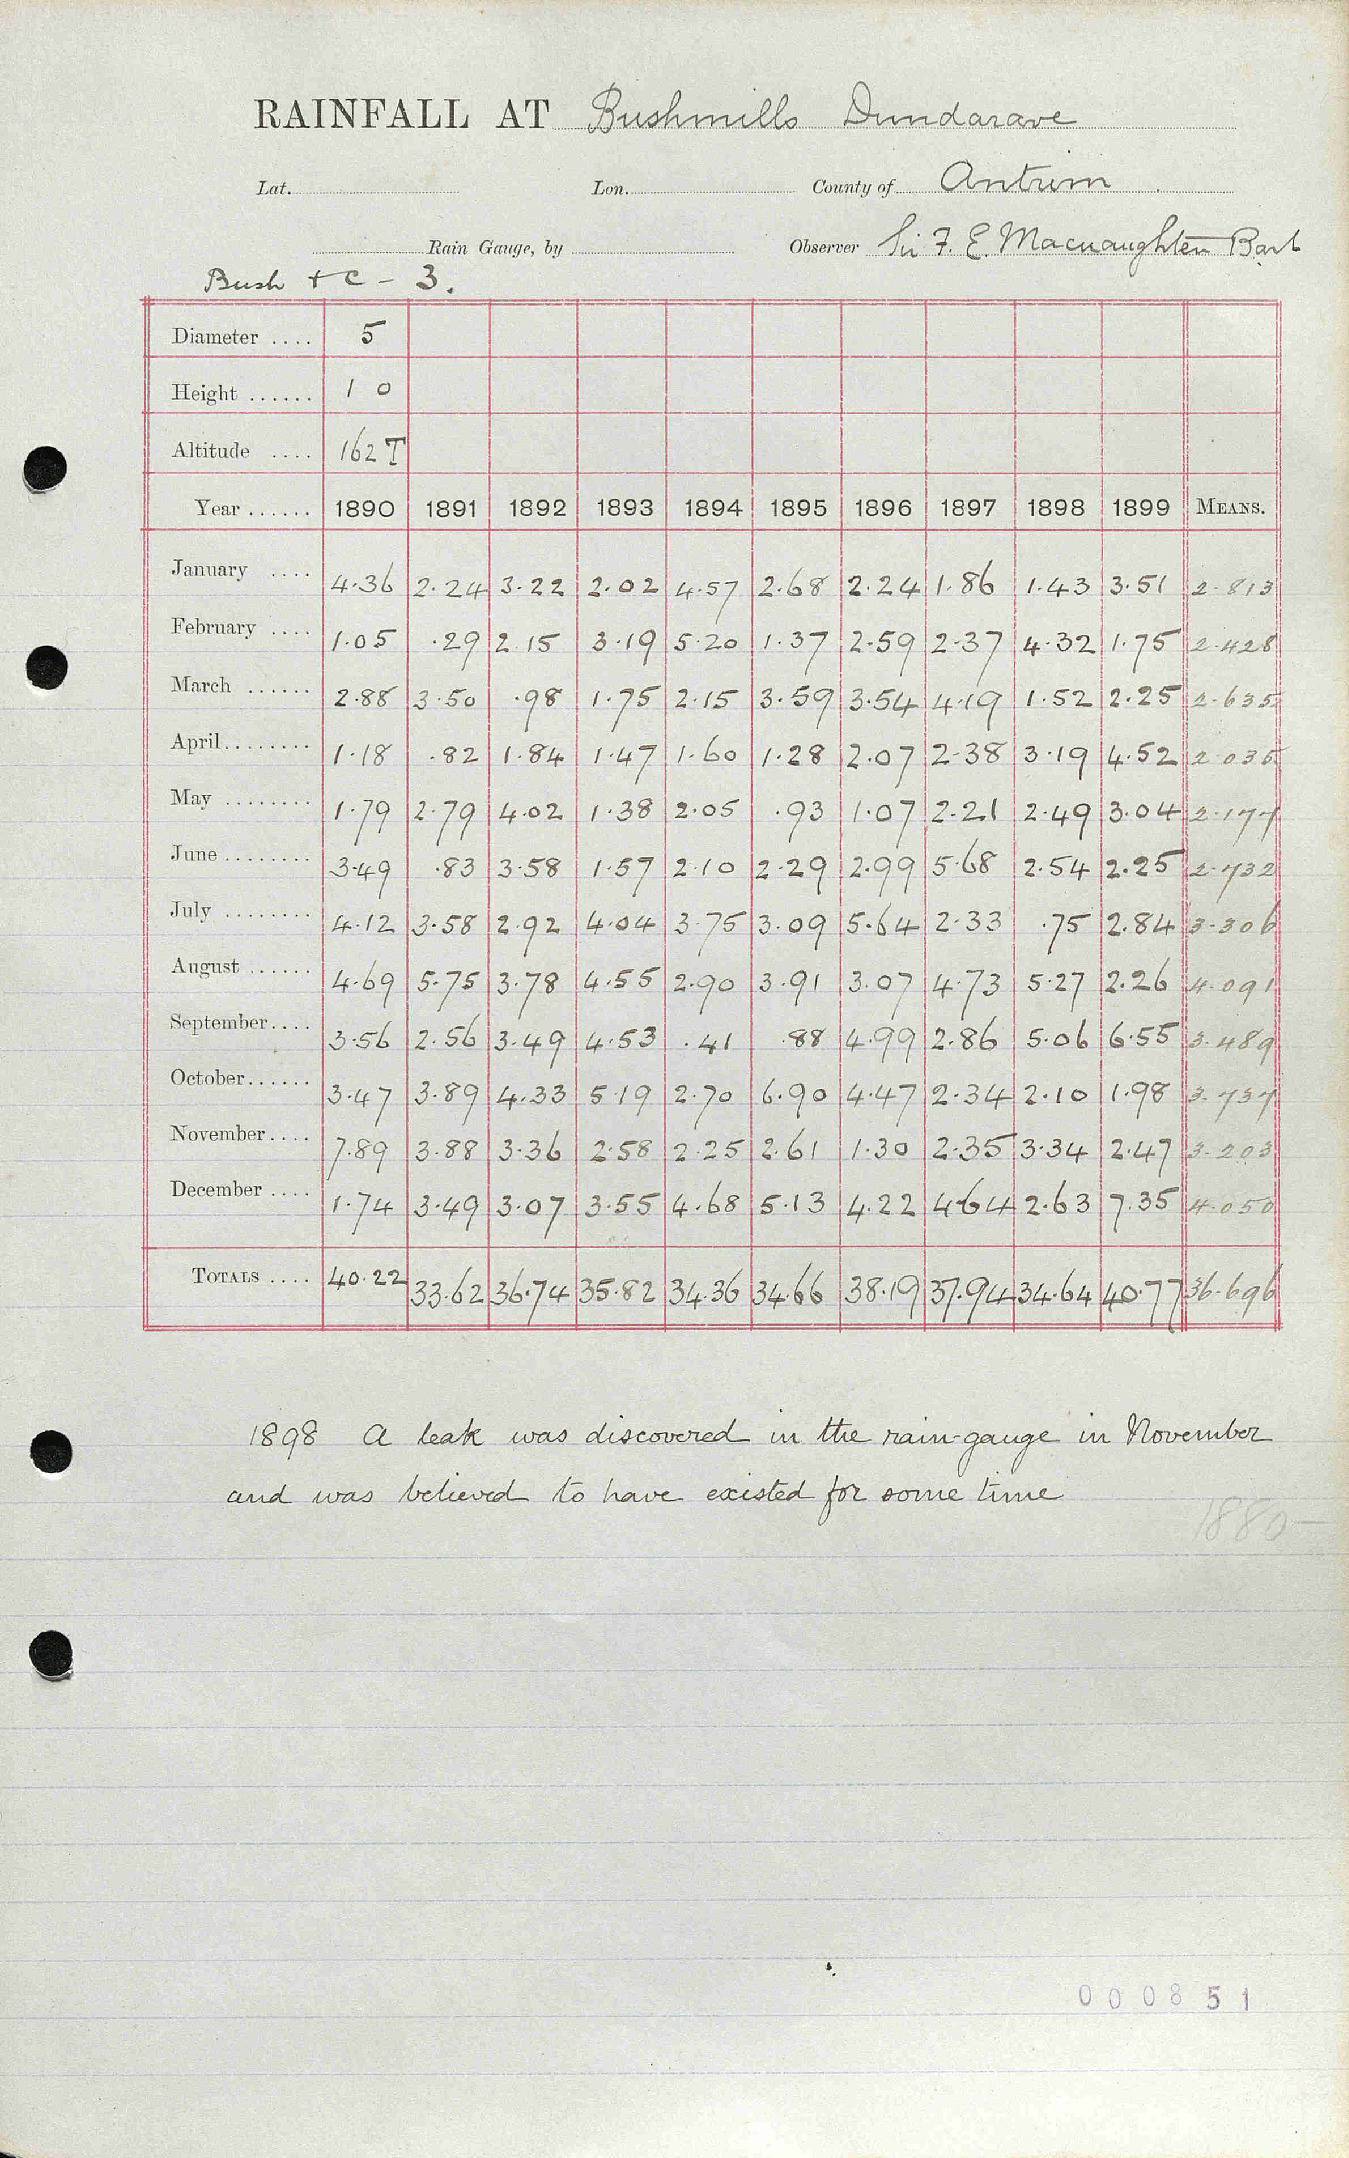 RAINFALL AT Bushmills Dundarave
Lat. Lon. County of Antrim
Rain Gauge, by Observer Sir F. E. Macnaughten Bart
Bush + C - 3.
Diameter .... 5
Height ...... 1 0
Altitude .... 162 T
Year ...... 1890 1891 1892 1893 1894 1895 1896 1897 1898 1899 MEANS.
January .... 4.36 2.24 3.22 2.02 4.57 2.68 2.24 1.86 1.43 3.51 2.813
February .... 1.05 .29 2.15 3.19 5.20 1.37 2.59 2.37 4.32 1.75 2.428
March ...... 2.88 3.50 .98 1.75 2.15 3.59 3.54 4.19 1.52 2.25 2.635
April........ 1.18 .82 1.84 1.47 1.60 1.28 2.07 2.38 3.19 4.52 2.035
May ........ 1.79 2.79 4.02 1.38 2.05 .93 1.07 2.21 2.49 3.04 2.177
June ........ 3.49 .83 3.58 1.57 2.10 2.29 2.99 5.68 2.54 2.25 2.732
July ........ 4.12 3.58 2.92 4.04 3.75 3.09 5.64 2.33 .75 2.84 3.306
August ...... 4.69 5.75 3.78 4.55 2.90 3.91 3.07 4.73 5.27 2.26 4.091
September.... 3.56 2.56 3.49 4.53 .41 .88 4.99 2.86 5.06 6.55 3.489
October...... 3.47 3.89 4.33 5.19 2.70 6.90 4.47 2.34 2.10 1.98 3.737
November.... 7.89 3.88 3.36 2.58 2.25 2.61 1.30 2.35 3.34 2.47 3.203
December .... 1.74 3.49 3.07 3.55 4.68 5.13 4.22 4.64 2.63 7.35 4.050
TOTALS .... 40.22 33.62 36.74 35.82 34.36 34.66 38.19 37.94 34.64 40.77 36.696
1898 A leak was discovered in the rain-gauge in November
and was believed to have existed for some time
1880-
000851